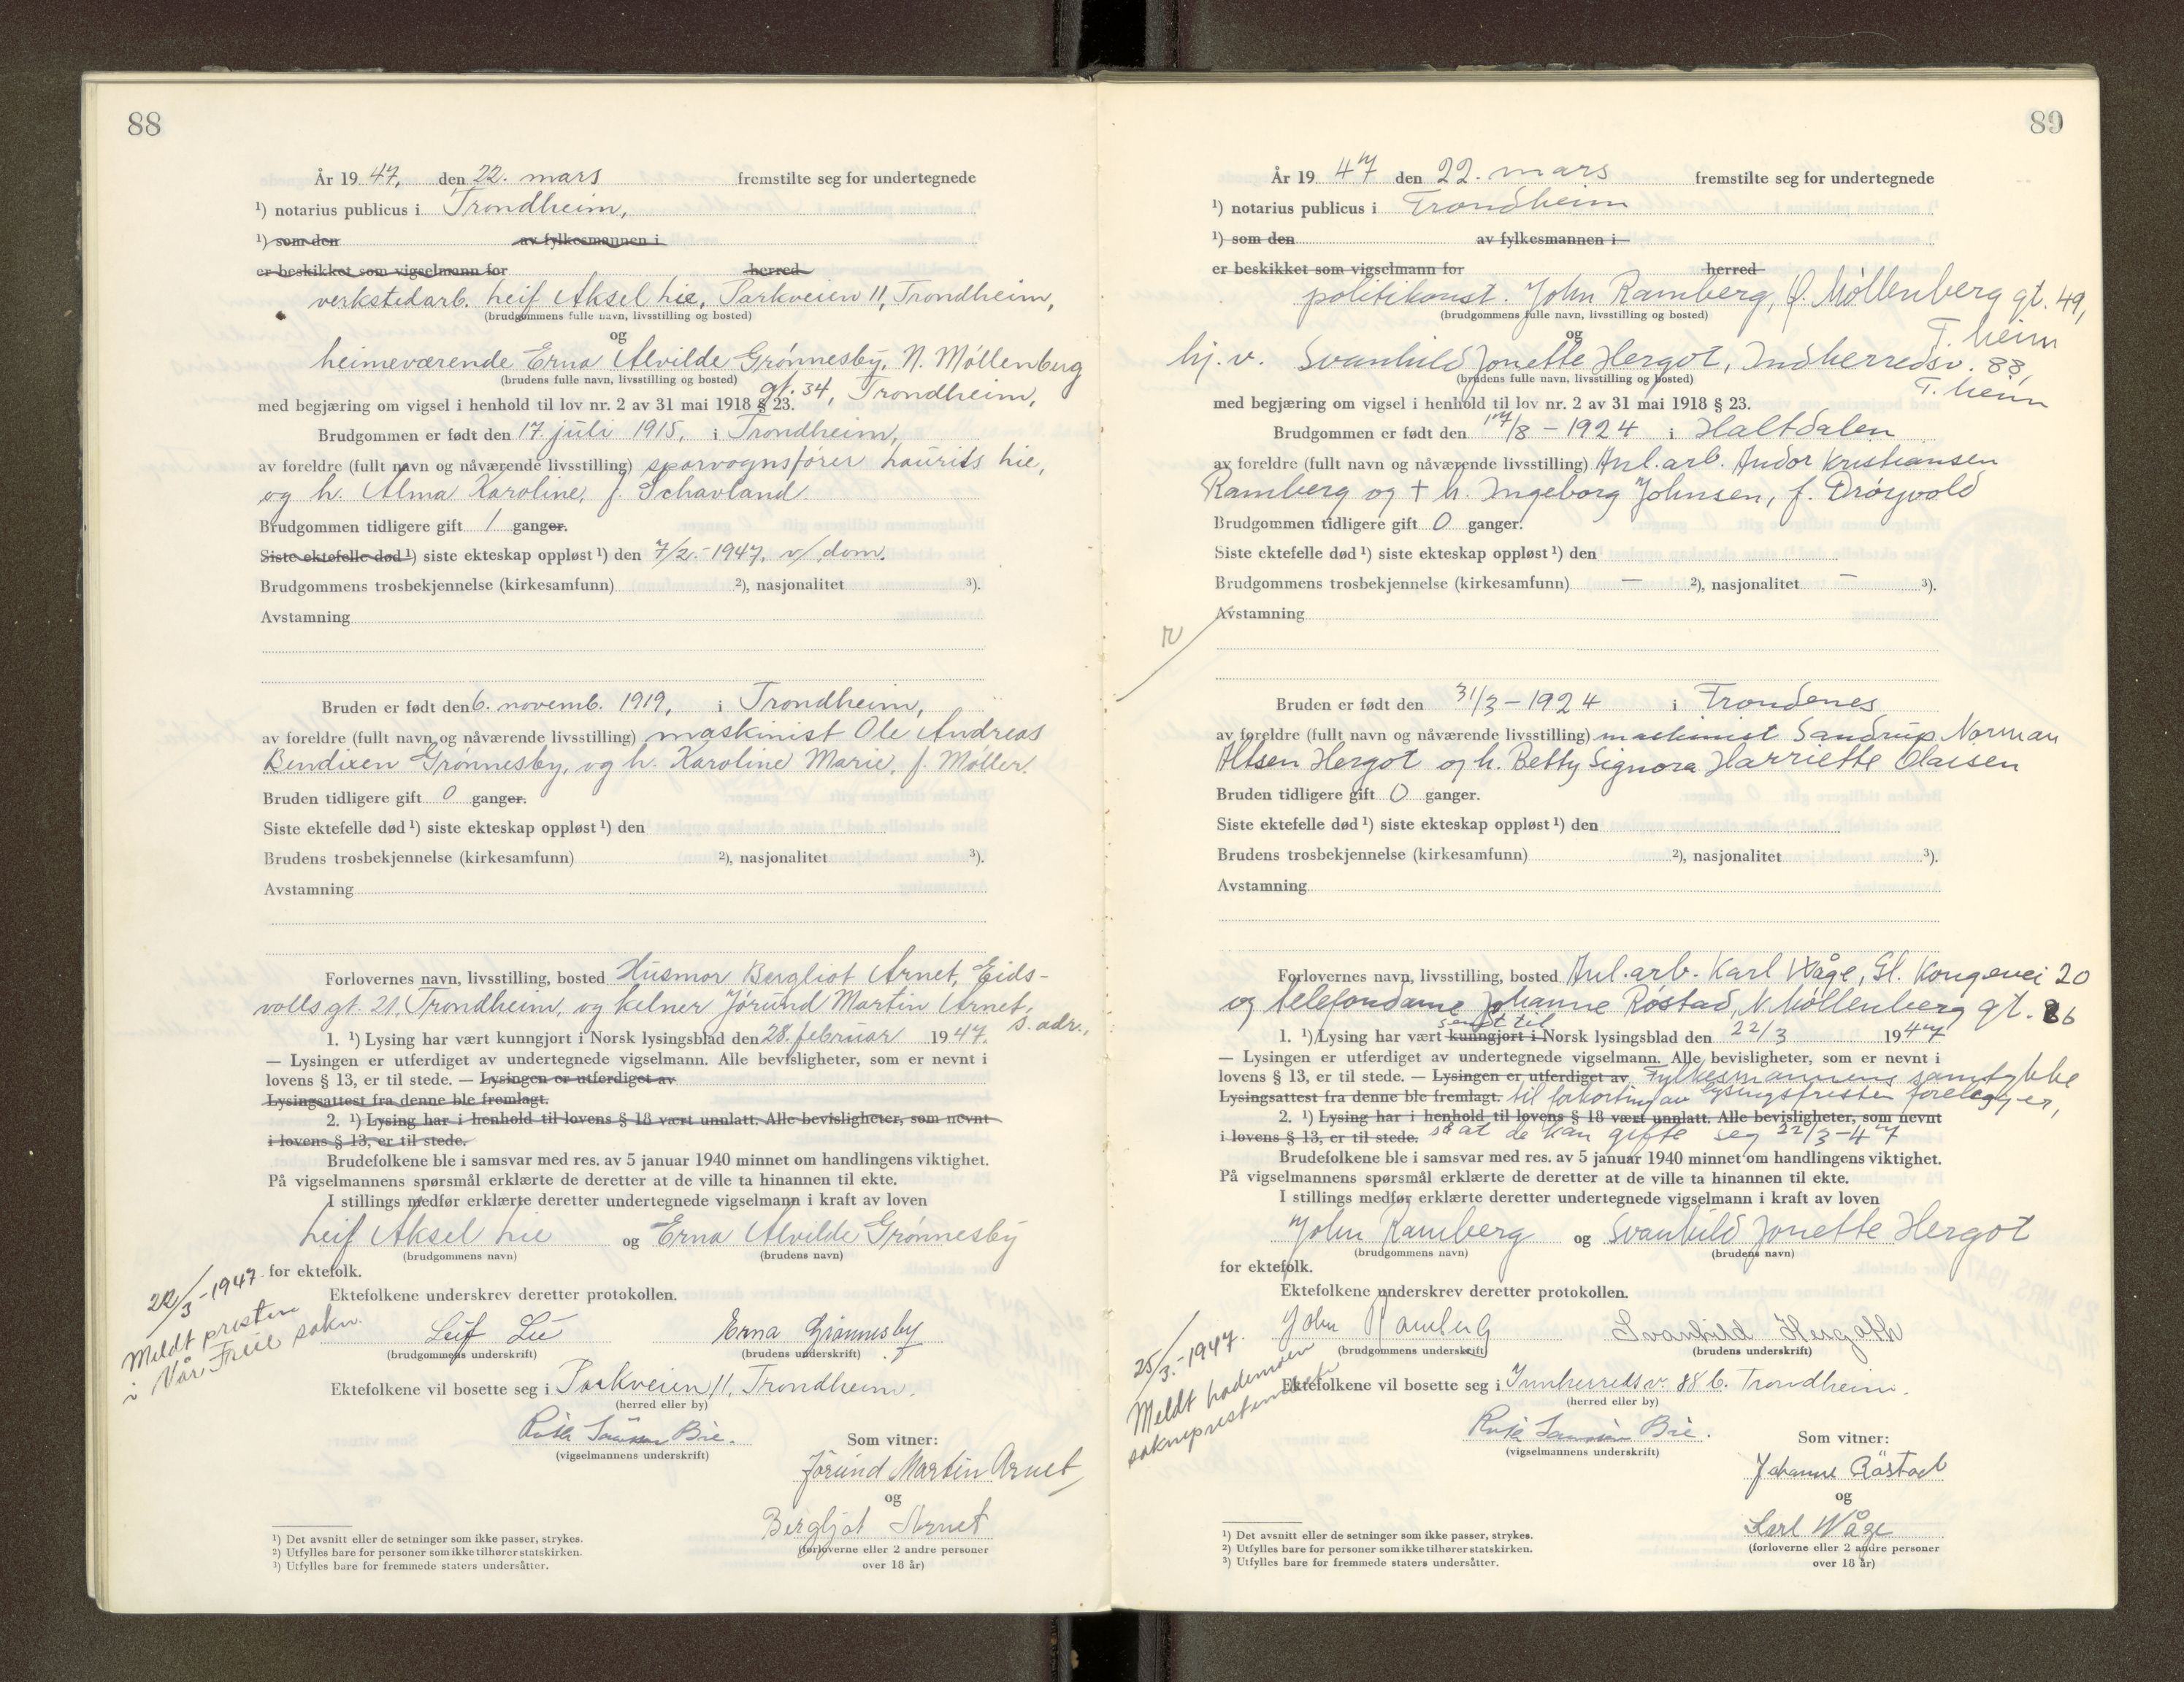 88
År 19 47, den 22. mars fremstilte seg for undertegnede
¹) notarius publicus i Trondheim,
¹) som den av fylkesmannen i
er beskikket som vigselmann for herred
verkstedarb. Leif Aksel Lie, Parkveien 11, Trondheim,
(brudgommens fulle navn, livsstilling og bosted)
og
heimeværende Erna Alvilde Grønnesby, N. Møllenberg
(brudens fulle navn, livsstilling og bosted) gt. 34, Trondheim,
med begjæring om vigsel i henhold til lov nr. 2 av 31 mai 1918 § 23.
Brudgommen er født den 17. juli 1915, i Trondheim,
av foreldre (fullt navn og nåværende livsstilling) sporvognsfører Laurits Lie,
og h. Alma Karoline, f. Schavland
Brudgommen tidligere gift 1 ganger.
Siste ektefelle død ¹) siste ekteskap oppløst ¹) den 7/2.-1947, v/ dom.
Brudgommens trosbekjennelse (kirkesamfunn) ²), nasjonalitet ³).
Avstamning
Bruden er født den 6. novemb. 1919, i Trondheim,
av foreldre (fullt navn og nåværende livsstilling) maskinist Ole Andreas
Bendixen Grønnesby, og h. Karoline Marie, f. Møller.
Bruden tidligere gift 0 ganger.
Siste ektefelle død ¹) siste ekteskap oppløst ¹) den
Brudens trosbekjennelse (kirkesamfunn) ²), nasjonalitet ³).
Avstamning
Forlovernes navn, livsstilling, bosted Husmor Bergliot Arnet, Eids-
volls gt. 21, Trondheim, og kelner Jørund Martin Arnet,
s. adr.,
1. ¹) Lysing har vært kunngjort i Norsk lysingsblad den 28. februar 1947.
— Lysingen er utferdiget av undertegnede vigselmann. Alle bevisligheter, som er nevnt i
lovens § 13, er til stede. — Lysingen er utferdiget av
Lysingsattest fra denne ble fremlagt.
2. ¹) Lysing har i henhold til lovens § 18 vært unnlatt. Alle bevisligheter, som nevnt
i lovens § 13, er til stede.
Brudefolkene ble i samsvar med res. av 5 januar 1940 minnet om handlingens viktighet.
På vigselmannens spørsmål erklærte de deretter at de ville ta hinannen til ekte.
I stillings medfør erklærte deretter undertegnede vigselmann i kraft av loven
Leif Aksel Lie og Erna Alvilde Grønnesby
(brudgommens navn) (brudens navn)
for ektefolk.
22/3-1947
Meldt presten
i Vår Frue sokn.
Ektefolkene underskrev deretter protokollen.
Leif Lie Erna Grønnesby
(brudgommens underskrift) (brudens underskrift)
Ektefolkene vil bosette seg i Parkveien 11, Trondheim.
(herred eller by)
Bie.
(vigselmannens underskrift)
Som vitner:
Jørund Martin Arnet
og
Bergljot Arnet
(forloverne eller 2 andre personer
over 18 år)
¹) Det avsnitt eller de setninger som ikke passer, strykes.
²) Utfylles bare for personer som ikke tilhører statskirken.
³) Utfylles bare for fremmede staters undersåtter.
89
År 19 47 den 22. mars fremstilte seg for undertegnede
¹) notarius publicus i Trondheim
¹) som den av fylkesmannen i
er beskikket som vigselmann for herred
politikonst. John Ramberg, Ø. Møllenberg gt. 49,
T.heim
(brudgommens fulle navn, livsstilling og bosted)
og
hj. v. Svanhild Jonette Hergot, Indherredsv. 88,
T.heim
(brudens fulle navn, livsstilling og bosted)
med begjæring om vigsel i henhold til lov nr. 2 av 31 mai 1918 § 23.
Brudgommen er født den 17/8 - 1924 i Haltdalen
av foreldre (fullt navn og nåværende livsstilling) Anl.arb. Andor Kristiansen
Ramberg og + h. Ingeborg Johnsen, f. Drøyvold
Brudgommen tidligere gift 0 ganger.
Siste ektefelle død ¹) siste ekteskap oppløst ¹) den
Brudgommens trosbekjennelse (kirkesamfunn) — ²), nasjonalitet — ³).
Avstamning
Bruden er født den 31/3 - 1924 i Trondenes
av foreldre (fullt navn og nåværende livsstilling) maskinist Sandrup Norman
Altsen Hergot og h. Betty Signora Harriette Olaisen
Bruden tidligere gift 0 ganger.
Siste ektefelle død ¹) siste ekteskap oppløst ¹) den
Brudens trosbekjennelse (kirkesamfunn) ²), nasjonalitet ³).
Avstamning
Forlovernes navn, livsstilling, bosted Anl.arb. Karl Wåge, Gl. Kongevei 20
og telefondame Johanne Røstad, N. Møllenberg gt. 86
sendt til
1. ¹) Lysing har vært kunngjort i Norsk lysingsblad den 22/3 1947
— Lysingen er utferdiget av undertegnede vigselmann. Alle bevisligheter, som er nevnt i
lovens § 13, er til stede. — Lysingen er utferdiget av Fylkesmannens samtykke
Lysingsattest fra denne ble fremlagt. til forkorting av lysingsfristen foreligger,
2. ¹) Lysing har i henhold til lovens § 18 vært unnlatt. Alle bevisligheter, som nevnt
i lovens § 13, er til stede. så at de kan gifte seg 22/3-47
Brudefolkene ble i samsvar med res. av 5 januar 1940 minnet om handlingens viktighet.
På vigselmannens spørsmål erklærte de deretter at de ville ta hinannen til ekte.
I stillings medfør erklærte deretter undertegnede vigselmann i kraft av loven
John Ramberg og Svanhild Jonette Hergot
(brudgommens navn) (brudens navn)
for ektefolk.
Ektefolkene underskrev deretter protokollen.
25/3.-1947.
Meldt
sokneprestembete
John Ramberg Svanhild Hergoth
(brudgommens underskrift) (brudens underskrift)
Ektefolkene vil bosette seg i Innherredsv. 88 b. Trondheim.
(herred eller by)
Bie.
(vigselmannens underskrift)
Som vitner:
Johanne Røstad
og
Karl Wåge
(forloverne eller 2 andre personer
over 18 år)
¹) Det avsnitt eller de setninger som ikke passer, strykes.
²) Utfylles bare for personer som ikke tilhører statskirken.
³) Utfylles bare for fremmede staters undersåtter.